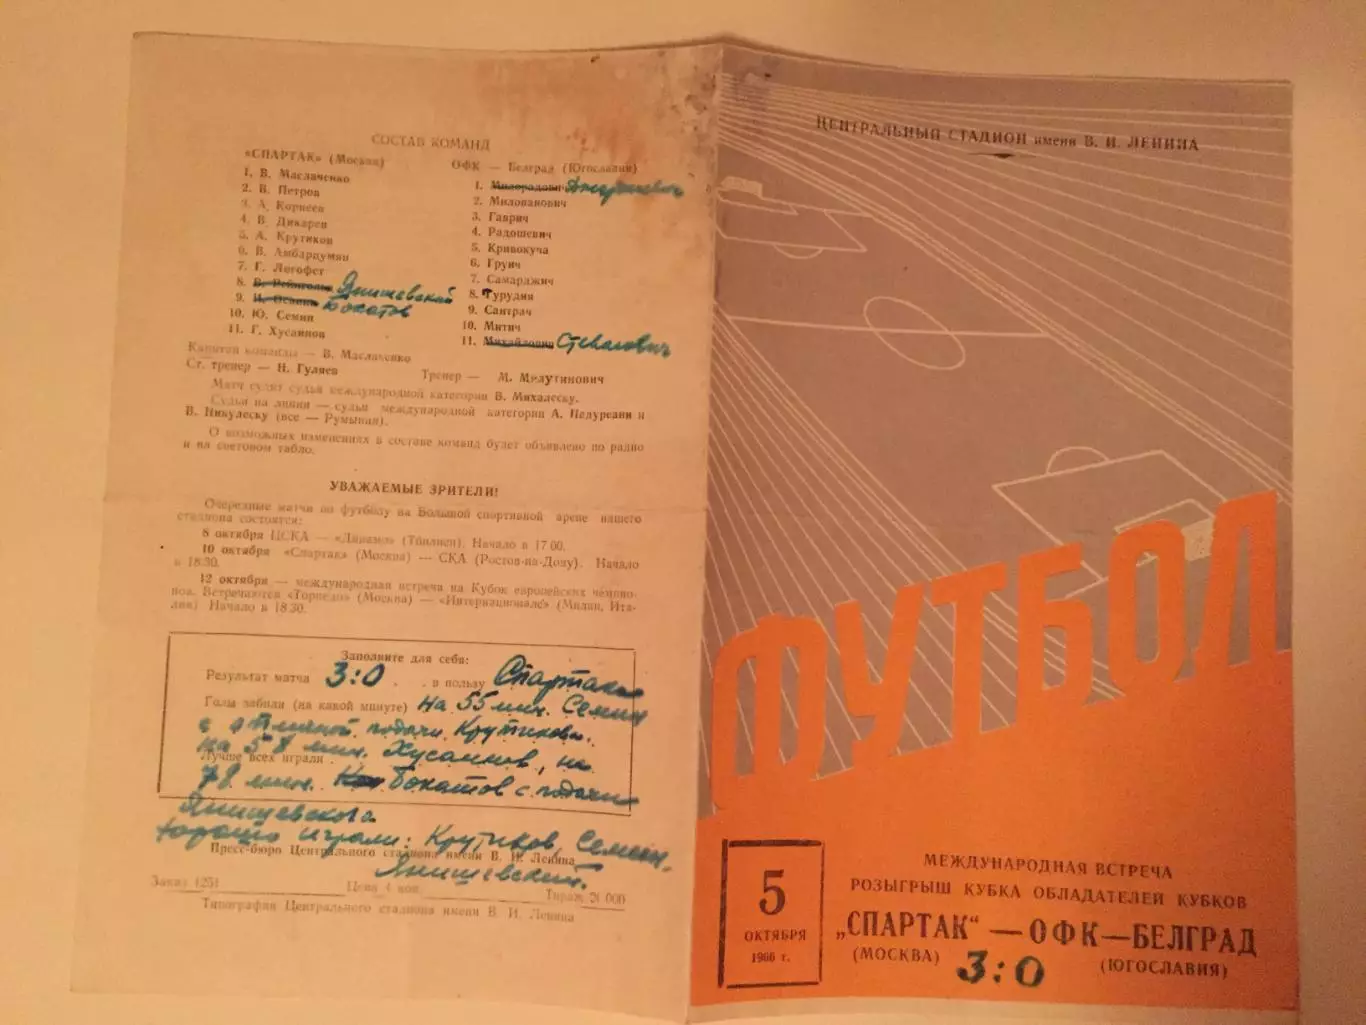 СОСТАВ КОМАНД
«СПАРТАК» (Москва)
1. В. Маслаченко
2. В. Петров
3. А. Корнеев
4. В. Дикарев
5. А. Крутиков
6. В. Амбарцумян
7. Г. Логофет
8. В. Янишевский
9. И. Осянин Бокатов
10. Ю. Семин
11. Г. Хусаинов
ОФК — Белград (Югославия)
1. Милорадович
2. Милованович
3. Гаврич
4. Радошевич
5. Кривокуча
6. Груич
7. Самарджич
8. Турудия
9. Сантрач
10. Митич
11. Михайлович Стеванович
Капитан команды — В. Маслаченко
Ст. тренер — Н. Гуляев
Тренер — М. Милутинович
Матч судит судья международной категории В. Михалеску.
Судьи на линии — судьи международной категории А. Педуреани и
В. Никулеску (все — Румыния).
О возможных изменениях в составе команд будет объявлено по радио
и на световом табло.
УВАЖАЕМЫЕ ЗРИТЕЛИ!
Очередные матчи по футболу на Большой спортивной арене нашего
стадиона состоятся:
8 октября ЦСКА — «Динамо» (Тбилиси). Начало в 17.00.
10 октября «Спартак» (Москва) — СКА (Ростов-на-Дону). Начало
в 18.30.
12 октября — международная встреча на Кубок европейских чемпио-
нов. Встречаются «Торпедо» (Москва) — «Интернационале» (Милан, Ита-
лия) Начало в 18.30.
Заполните для себя:
Результат матча 3:0 . . в пользу Спартака
Голы забили (на какой минуте) На 55 мин. Семин
с отличной подачи Крутикова.
на 58 мин. Хусаинов, на
Лучше всех играли
78 мин. Бокатов с подачи
Янишевского
хорошо играли: Крутиков, Семин,
Янишевский.
Пресс-бюро Центрального стадиона имени В. И. Ленина
Заказ 1251 Цена 4 коп. Тираж 26 000
Типография Центрального стадиона имени В. И. Ленина
ЦЕНТРАЛЬНЫЙ СТАДИОН имени В. И. ЛЕНИНА
ФУТБОЛ
5
ОКТЯБРЯ
1966 г.
МЕЖДУНАРОДНАЯ ВСТРЕЧА
РОЗЫГРЫШ КУБКА ОБЛАДАТЕЛЕЙ КУБКОВ
„СПАРТАК“ — ОФК — БЕЛГРАД
(МОСКВА) 3:0 (ЮГОСЛАВИЯ)